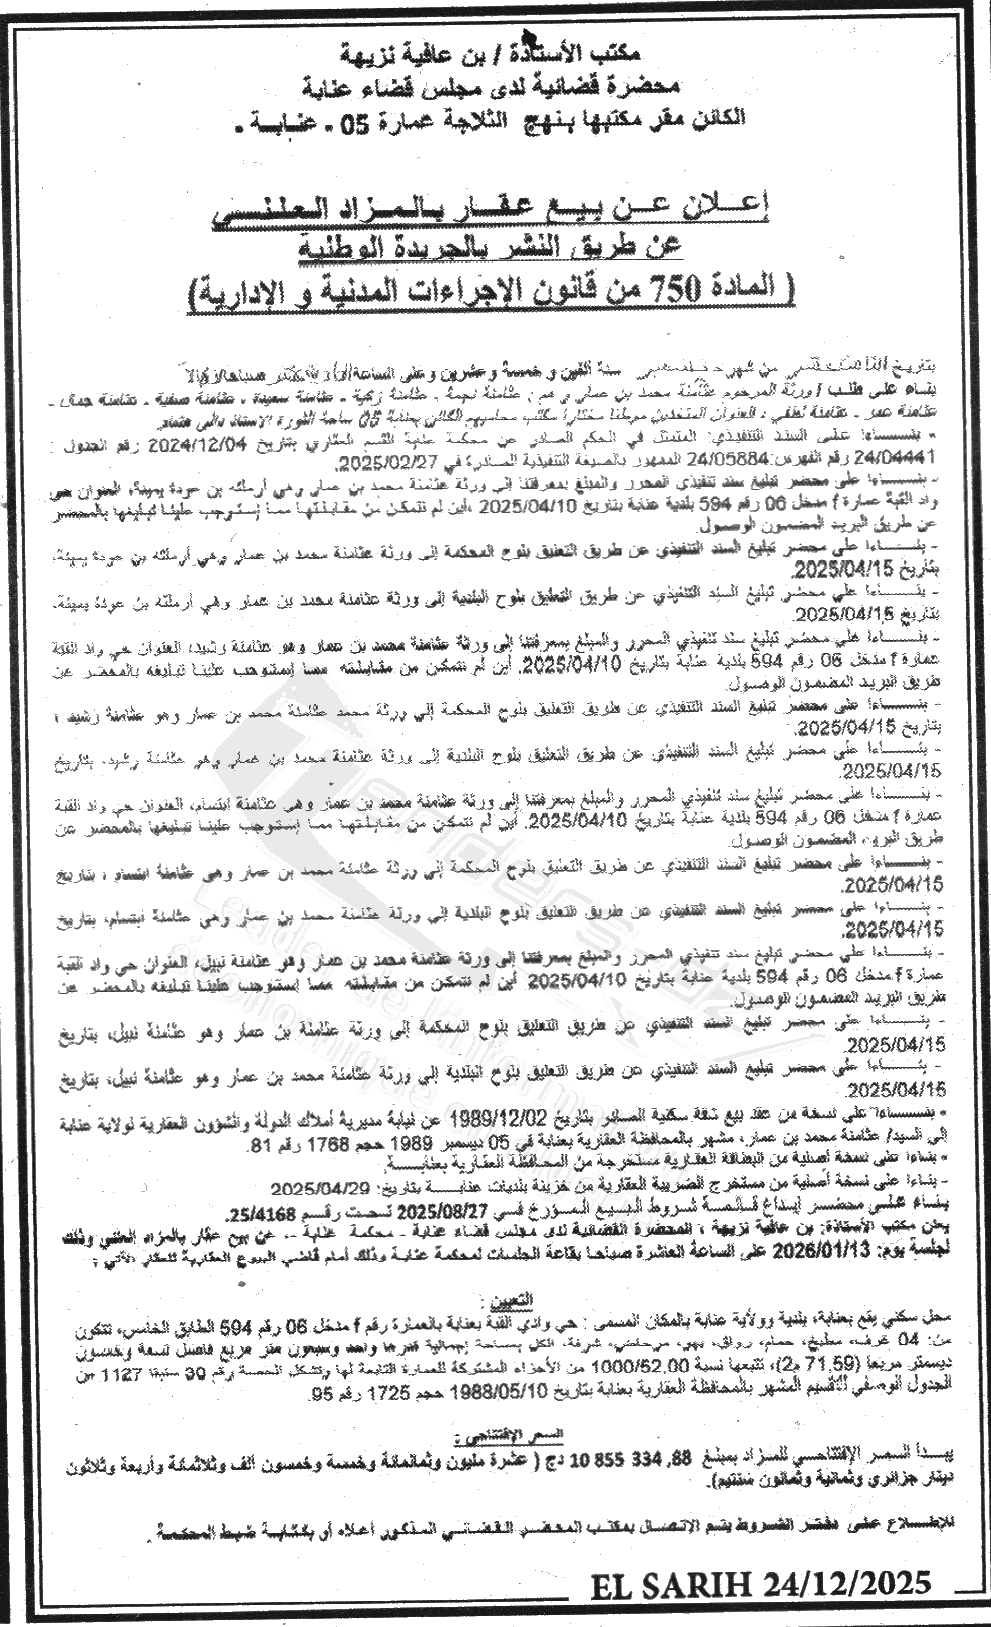 مكتب الأستاذة / بن عافية نزيهة
محضرة قضائية لدى مجلس قضاء عنابة
الكائن مقر مكتبها بنهج الثلاجة عمارة 05 - عنابة -
إعلان عن بيع عقار بالمزاد العلني
عن طريق النشر بالجريدة الوطنية
( المادة 750 من قانون الإجراءات المدنية و الإدارية)
بتاريخ من شهر سنة ألفين و خمسة وعشرين وعلى الساعة
بناء على طلب / ورثة المرحوم عثامنة محمد بن عمار و هم : عثامنة نجمة - عثامنة زكية - عثامنة سعيدة - عثامنة صفية - عثامنة جمال -
عثامنة عمر - عثامنة لطفي ، العنوان المتخذين موطنا مختارا مكتب محاميهم الكائن بعنابة 05 ساحة الثورة الاستاذ
- بناءا على السند التنفيذي: المتمثل في الحكم الصادر عن محكمة عنابة القسم العقاري بتاريخ 2024/12/04 رقم الجدول :
24/04441 رقم الفهرس: 24/05884 الممهور بالصيغة التنفيذية الصادرة في 2025/02/27.
- بناءا على محضر تبليغ سند تنفيذي المحرر والمبلغ بمعرفتنا إلى ورثة عثامنة محمد بن عمار وهي أرملته بن عودة يمينة، العنوان حي
واد القبة عمارة f مدخل 06 رقم 594 بلدية عنابة بتاريخ 2025/04/10 ،أين لم نتمكن من مقابلتها مما إستوجب علينا تبليغها بالمحضر
عن طريق البريد المضمون الوصول.
- بناءا على محضر تبليغ السند التنفيذي عن طريق التعليق بلوح المحكمة إلى ورثة عثامنة محمد بن عمار وهي أرملته بن عودة يمينة،
بتاريخ 2025/04/15.
- بناءا على محضر تبليغ السند التنفيذي عن طريق التعليق بلوح البلدية إلى ورثة عثامنة محمد بن عمار وهي أرملته بن عودة يمينة،
بتاريخ 2025/04/15.
- بناءا على محضر تبليغ سند تنفيذي المحرر والمبلغ بمعرفتنا إلى ورثة عثامنة محمد بن عمار وهو عثامنة رشيد، العنوان حي واد القبة
عمارة f مدخل 06 رقم 594 بلدية عنابة بتاريخ 2025/04/10. أين لم نتمكن من مقابلته مما إستوجب علينا تبليغه بالمحضر عن
طريق البريد المضمون الوصول.
- بناءا على محضر تبليغ السند التنفيذي عن طريق التعليق بلوح المحكمة إلى ورثة محمد عثامنة محمد بن عمار وهو عثامنة رشيد ،
بتاريخ 2025/04/15.
- بناءا على محضر تبليغ السند التنفيذي عن طريق التعليق بلوح البلدية إلى ورثة عثامنة محمد بن عمار وهي عثامنة رشيد، بتاريخ
2025/04/15.
- بناءا على محضر تبليغ سند تنفيذي المحرر والمبلغ بمعرفتنا إلى ورثة عثامنة محمد بن عمار وهي عثامنة ابتسام، العنوان حي واد القبة
عمارة f مدخل 06 رقم 594 بلدية عنابة بتاريخ 2025/04/10. أين لم نتمكن من مقابلتها مما إستوجب علينا تبليغها بالمحضر عن
طريق البريد المضمون الوصول.
- بناءا على محضر تبليغ السند التنفيذي عن طريق التعليق بلوح المحكمة إلى ورثة عثامنة محمد بن عمار وهي عثامنة ابتسام ، بتاريخ
2025/04/15.
- بناءا على محضر تبليغ السند التنفيذي عن طريق التعليق بلوح البلدية إلى ورثة عثامنة محمد بن عمار وهي عثامنة ابتسام، بتاريخ
2025/04/15.
- بناءا على محضر تبليغ سند تنفيذي المحرر والمبلغ بمعرفتنا إلى ورثة عثامنة محمد بن عمار وهو عثامنة نبيل، العنوان حي واد القبة
عمارة f مدخل 06 رقم 594 بلدية عنابة بتاريخ 2025/04/10 أين لم نتمكن من مقابلته مما إستوجب علينا تبليغه بالمحضر عن
طريق البريد المضمون الوصول.
- بناءا على محضر تبليغ السند التنفيذي عن طريق التعليق بلوح المحكمة إلى ورثة عثامنة بن عمار وهو عثامنة نبيل، بتاريخ
2025/04/15.
- بناءا على محضر تبليغ السند التنفيذي عن طريق التعليق بلوح البلدية إلى ورثة عثامنة محمد بن عمار وهو عثامنة نبيل، بتاريخ
2025/04/15.
- بناءا على نسخة من عقد بيع شقة سكنية الصادر بتاريخ 1989/12/02 عن نيابة مديرية أملاك الدولة والشؤون العقارية لولاية عنابة
إلى السيد/ عثامنة محمد بن عمار، مشهر بالمحافظة العقارية بعنابة في 05 ديسمبر 1989 حجم 1768 رقم 81.
- بناءا على نسخة أصلية من البطاقة العقارية مستخرجة من المحافظة العقارية بعنابة.
- بناءا على نسخة أصلية من مستخرج الضريبة العقارية من خزينة بلديات عنابة بتاريخ: 2025/04/29
بناء على محضر إيداع قائمة شروط البيع المؤرخ في 2025/08/27 تحت رقم 25/4168.
يعلن مكتب الأستاذة: بن عافية نزيهة ، المحضرة القضائية لدى مجلس قضاء عنابة - محكمة عنابة -. عن بيع عقار بالمزاد العلني وذلك
لجلسة يوم: 2026/01/13 على الساعة العاشرة صباحا بقاعة الجلسات لمحكمة عنابة وذلك أمام قاضي البيوع العقارية للعقار الآتي :
التعيين :
محل سكني يقع بعنابة، بلدية وولاية عنابة بالمكان المسمى : حي وادي القبة بعنابة بالعمارة رقم f مدخل 06 رقم 594 الطابق الخامس، تتكون
من: 04 غرف، مطبخ، حمام، رواق، بهو، مرحاض، شرفة، الكل بمساحة إجمالية قدرها واحد وسبعون متر مربع فاصل تسعة وخمسون
ديسمتر مربعا (71,59 م2)، تتبعها نسبة 1000/52.00 من الأجزاء المشتركة للعمارة التابعة لها وتشكل الحصة رقم 30 سبقا 1127 من
الجدول الوصفي للتقسيم المشهر بالمحافظة العقارية بعنابة بتاريخ 1988/05/10 حجم 1725 رقم 95.
السعر الإفتتاحي :
يبدأ السعر الإفتتاحي للمزاد بمبلغ 10 855 334 ,88 دج ( عشرة مليون وثمانمائة وخمسة وخمسون ألف وثلاثمائة وأربعة وثلاثون
دينار جزائري وثمانية وثمانون سنتيم).
للإطلاع على دفتر الشروط يتم الاتصال بمكتب المحضر القضائي المذكور أعلاه أو بكتابة ضبط المحكمة .
EL SARIH 24/12/2025